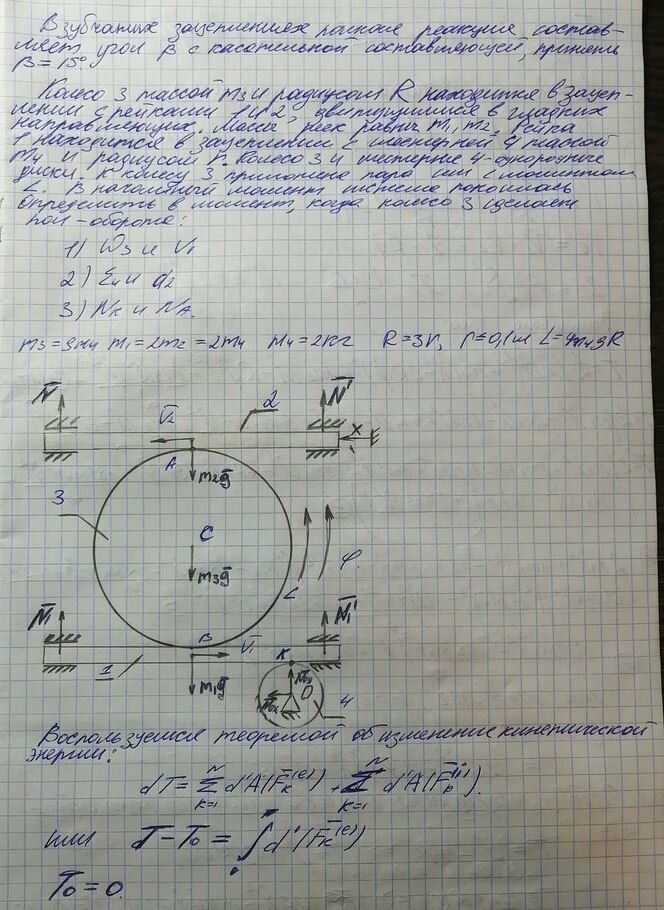 В зубчатых зацеплениях полная реакция состав-
ляет угол β с касательной составляющей, принять
β = 15°
Колесо 3 массой m₃ и радиусом R находится в зацеп-
лении с рейками 1 и 2, движущимися в гладких
направляющих. Массы реек равны m₁, m₂. Рейка
1 находится в зацеплении с шестерней 4 массой
m₄ и радиусом r. Колесо 3 и шестерня 4 - однородные
диски. К колесу 3 приложена пара сил с моментом
L. В начальный момент система покоилась
Определить в момент, когда колесо 3 сделает
пол-оборота:
1) ω₃ и V₁
2) ε₄ и a₂
3) Nₖ и N_A.
m₃ = 3m₄ m₁ = 2m₂ = 2m₄ m₄ = 2кг R = 3r, L = 4m₄gR
N̄
N̄'
V̄₂
2
x
A
m₂ḡ
3
C
m₃ḡ
φ
L
N̄₁
N̄₁'
B
V̄₁
K
1
m₁ḡ
O
4
Воспользуемся теоремой об изменение кинетической
энергии:
dT = Σ d'A(F̄ₖ⁽ᵉ⁾) + Σ d'A(F̄ₖ⁽ⁱ⁾).
N
N
k=1
k=1
или T - T₀ = ∫ d'(F̄ₖ⁽ᵉ⁾)
T₀ = 0.